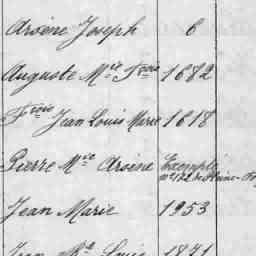 Arsène Joseph 6
Auguste Mie Frois 1682
Frois Jean Louis Marie 1618
Pierre Mie Arsène Exempté
Jean Marie 1953
Jean Louis 1871